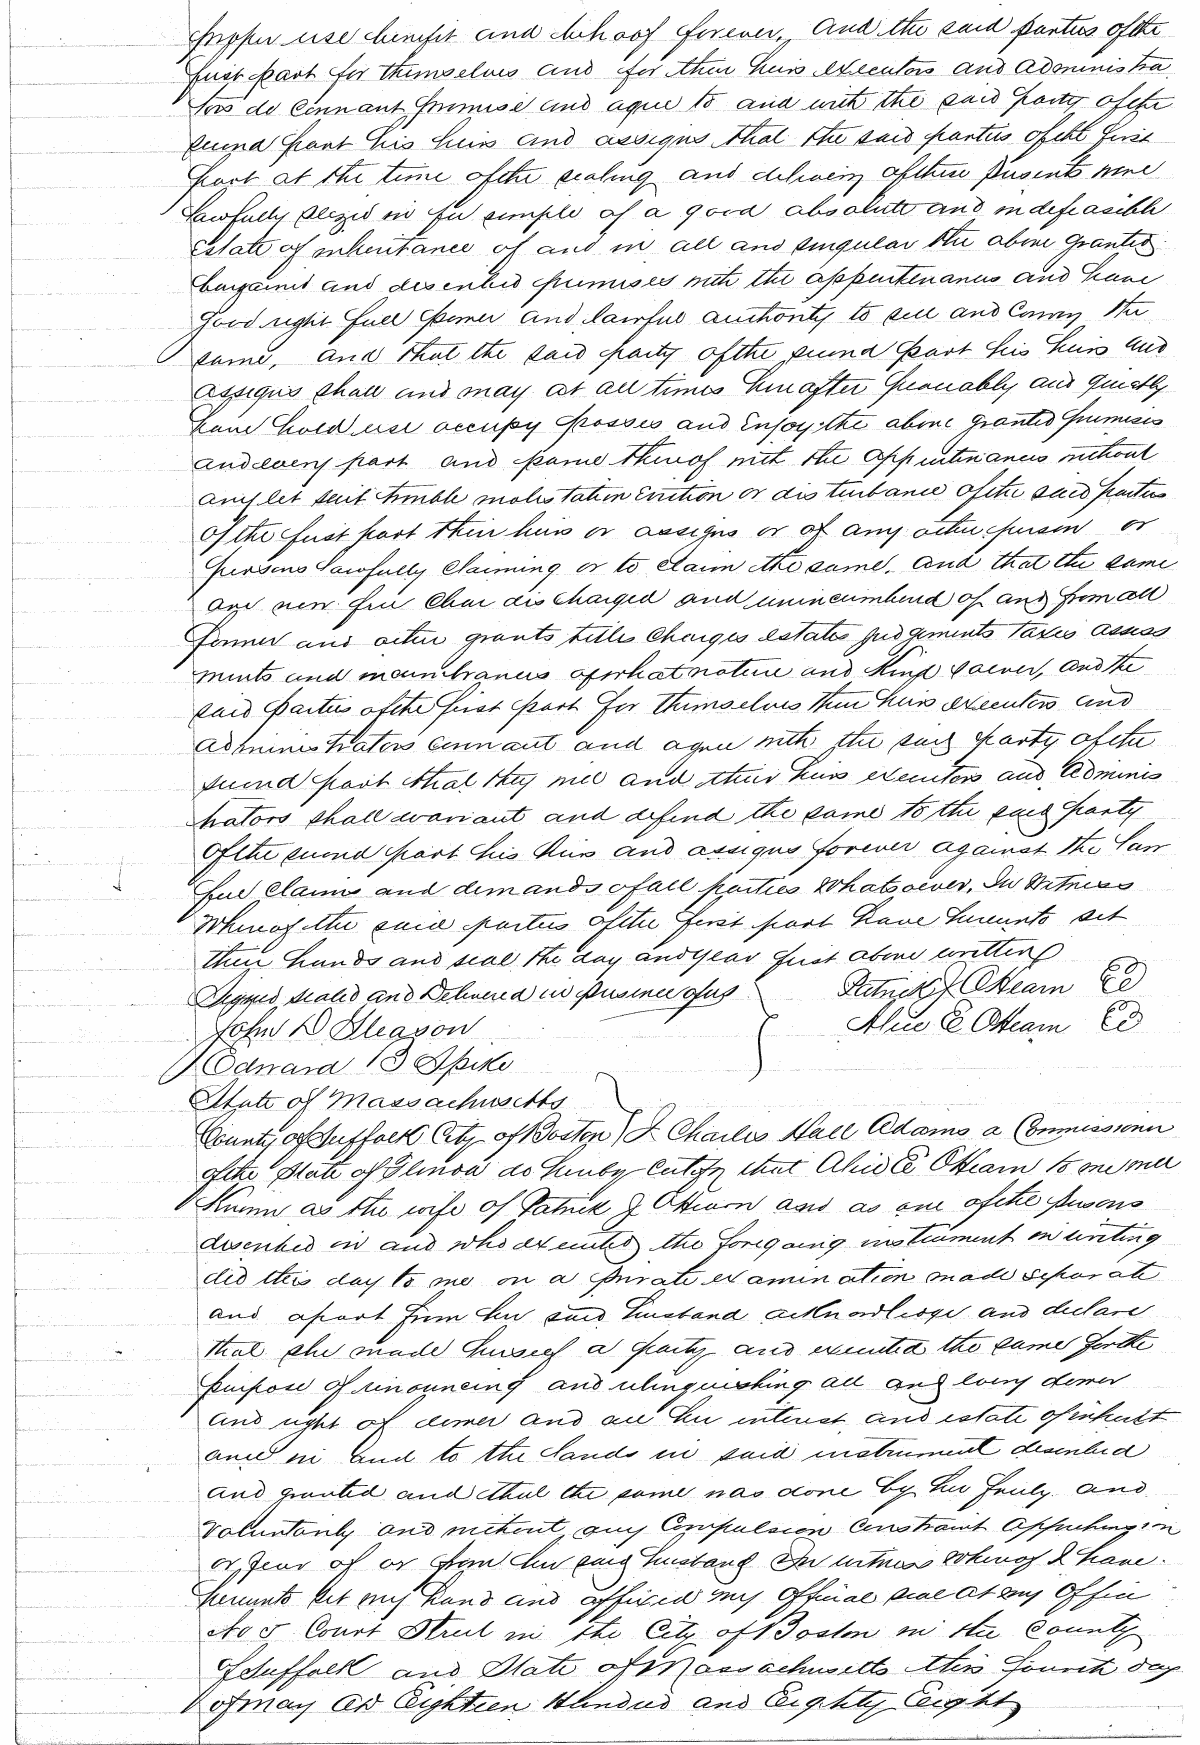 proper use benefit and behoof forever,, And the said parties of the
first part for themselves and for their heirs executors and administra
tors do covenant promise and agree to and with the said party of the
second part his heirs and assigns that the said parties of the first
part at the time of the sealing and delivery of these presents were
lawfully siezed in fee simple of a good absolute and indefeasible
estate of inheritance of and in all and singular the above granted
bargained and described premises with the appurtenances and have
good right full power and lawful authority to sell and convey the
same, and that the said party of the second part his heirs and
assigns shall and may at all times hereafter peaceably and quietly
have hold use occupy posses and enjoy the above granted premises
and every part and parcel thereof with the appurtenances without
any let suit trouble molestation eviction or disturbance of the said parties
of the first part their heirs or assigns or of any other person or
persons lawfully claiming or to claim the same. And that the same
are now free clear discharged and unincumbered of and from all
former and other grants titles charges estates judgements taxes assess
ments and incumbrances of what nature and kind soever, and the
said parties of the first part for themselves their heirs executors and
administrators covenant and agree with the said party of the
second part that they will and their heirs executors and adminis
trators shall warrant and defend the same to the said party
of the second part his heirs and assigns forever against the law
ful claims and demands of all parties whatsoever, In Witness
Whereof the said parties of the first part have hereunto set
their hands and seal the day and year first above written
Signed sealed and Delivered in presence of us Patrick J OHearn
John D Gleason Alice E OHearn
Edward B Spike
State of Massachusetts
County of Suffolk City of Boston } I Charles Hall Adams a Commissioner
of the State of do hereby certify that Alice E OHearn to me well
Known as the wife of Patrick J OHearn and as one of the persons
described in and who executed the foregoing instrument in writing
did this day to me on a private examination made separate
and apart from her said husband acknowledge and declare
that she made herself a party and executed the same for the
purpose of renouncing and relinquishing all and every dower
and right of dower and all her interest and estate of inherit
ance in and to the lands in said instrument described
and granted and that the same was done by her freely and
voluntarily and without any compulsion constraint apprehension
or fear of or from her said husband In witness whereof I have
hereunto set my hand and affixed my official seal at my office
No 5 Court Street in the City of Boston in the County
of Suffolk and State of Massachusetts this fourth day
of May AD Eighteen Hundred and Eighty Eight